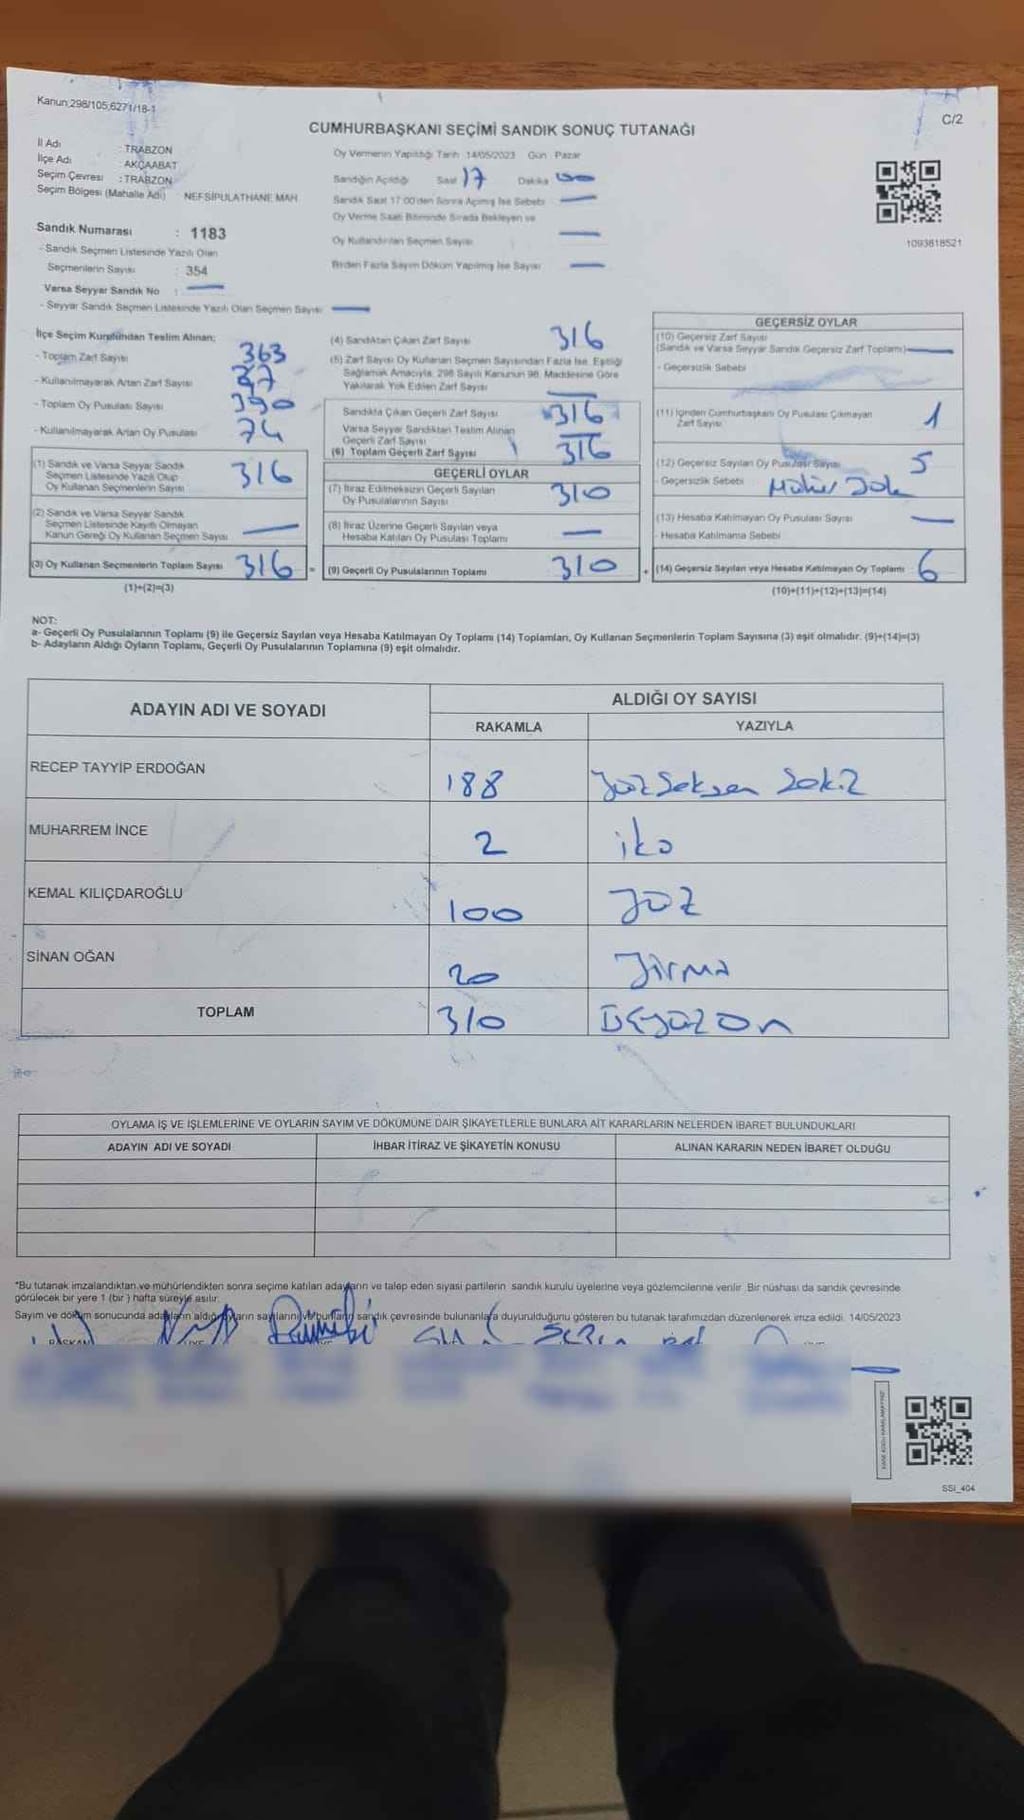 Kanun;298/105,6271/18-1
C/2
CUMHURBAŞKANI SEÇİMİ SANDIK SONUÇ TUTANAĞI
İl Adı : TRABZON
İlçe Adı : AKÇAABAT
Seçim Çevresi : TRABZON
Seçim Bölgesi (Mahalle Adı) NEFSİPULATHANE MAH.
Sandık Numarası : 1183
- Sandık Seçmen Listesinde Yazılı Olan
Seçmenlerin Sayısı : 354
Varsa Seyyar Sandık No :
- Seyyar Sandık Seçmen Listesinde Yazılı Olan Seçmen Sayısı
Oy Vermenin Yapıldığı Tarih 14/05/2023 Gün Pazar
Sandığın Açıldığı Saat 17 Dakika 00
Sandık Saat 17:00'den Sonra Açılmış İse Sebebi
Oy Verme Saati Bitiminde Sırada Bekleyen ve
Oy Kullandırılan Seçmen Sayısı
Birden Fazla Sayım Döküm Yapılmış İse Sayısı
1093818521
İlçe Seçim Kurulundan Teslim Alınan;
- Toplam Zarf Sayısı 363
- Kullanılmayarak Artan Zarf Sayısı 47
- Toplam Oy Pusulası Sayısı 390
- Kullanılmayarak Artan Oy Pusulası 74
(1) Sandık ve Varsa Seyyar Sandık
Seçmen Listesinde Yazılı Olup
Oy Kullanan Seçmenlerin Sayısı 316
(2) Sandık ve Varsa Seyyar Sandık
Seçmen Listesinde Kayıtlı Olmayan
Kanun Gereği Oy Kullanan Seçmen Sayısı
(3) Oy Kullanan Seçmenlerin Toplam Sayısı 316 =
(1)+(2)=(3)
(4) Sandıktan Çıkan Zarf Sayısı 316
(5) Zarf Sayısı Oy Kullanan Seçmen Sayısından Fazla İse, Eşitliği
Sağlamak Amacıyla, 298 Sayılı Kanunun 98. Maddesine Göre
Yakılarak Yok Edilen Zarf Sayısı
Sandıkta Çıkan Geçerli Zarf Sayısı 316
Varsa Seyyar Sandıktan Teslim Alınan
Geçerli Zarf Sayısı
(6) Toplam Geçerli Zarf Sayısı 316
GEÇERLİ OYLAR
(7) İtiraz Edilmeksizin Geçerli Sayılan
Oy Pusulalarının Sayısı 310
(8) İtiraz Üzerine Geçerli Sayılan veya
Hesaba Katılan Oy Pusulası Toplamı
(9) Geçerli Oy Pusulalarının Toplamı 310 +
GEÇERSİZ OYLAR
(10) Geçersiz Zarf Sayısı
(Sandık ve Varsa Seyyar Sandık Geçersiz Zarf Toplamı)
- Geçersizlik Sebebi
(11) İçinden Cumhurbaşkanı Oy Pusulası Çıkmayan
Zarf Sayısı 1
(12) Geçersiz Sayılan Oy Pusulası Sayısı 5
- Geçersizlik Sebebi
(13) Hesaba Katılmayan Oy Pusulası Sayısı
- Hesaba Katılmama Sebebi
(14) Geçersiz Sayılan veya Hesaba Katılmayan Oy Toplamı 6
(10)+(11)+(12)+(13)=(14)
NOT:
a- Geçerli Oy Pusulalarının Toplamı (9) ile Geçersiz Sayılan veya Hesaba Katılmayan Oy Toplamı (14) Toplamları, Oy Kullanan Seçmenlerin Toplam Sayısına (3) eşit olmalıdır. (9)+(14)=(3)
b- Adayların Aldığı Oyların Toplamı, Geçerli Oy Pusulalarının Toplamına (9) eşit olmalıdır.
ADAYIN ADI VE SOYADI
ALDIĞI OY SAYISI
RAKAMLA YAZIYLA
RECEP TAYYİP ERDOĞAN 188 yüz seksen Sekiz
MUHARREM İNCE 2 iki
KEMAL KILIÇDAROĞLU 100 yüz
SİNAN OĞAN 20 yirmi
TOPLAM 310 üçyüz on
OYLAMA İŞ VE İŞLEMLERİNE VE OYLARIN SAYIM VE DÖKÜMÜNE DAİR ŞİKAYETLERLE BUNLARA AİT KARARLARIN NELERDEN İBARET BULUNDUKLARI
ADAYIN ADI VE SOYADI İHBAR İTİRAZ VE ŞİKAYETİN KONUSU ALINAN KARARIN NEDEN İBARET OLDUĞU
*Bu tutanak imzalandıktan ve mühürlendikten sonra seçime katılan adayların ve talep eden siyasi partilerin sandık kurulu üyelerine veya gözlemcilerine verilir. Bir nüshası da sandık çevresinde
görülecek bir yere 1 (bir ) hafta süreyle asılır.
Sayım ve döküm sonucunda adayların aldığı oyların sayılarını ve bunların sandık çevresinde bulunanlara duyurulduğunu gösteren bu tutanak tarafımızdan düzenlenerek imza edildi. 14/05/2023
BAŞKAN
SSI_404